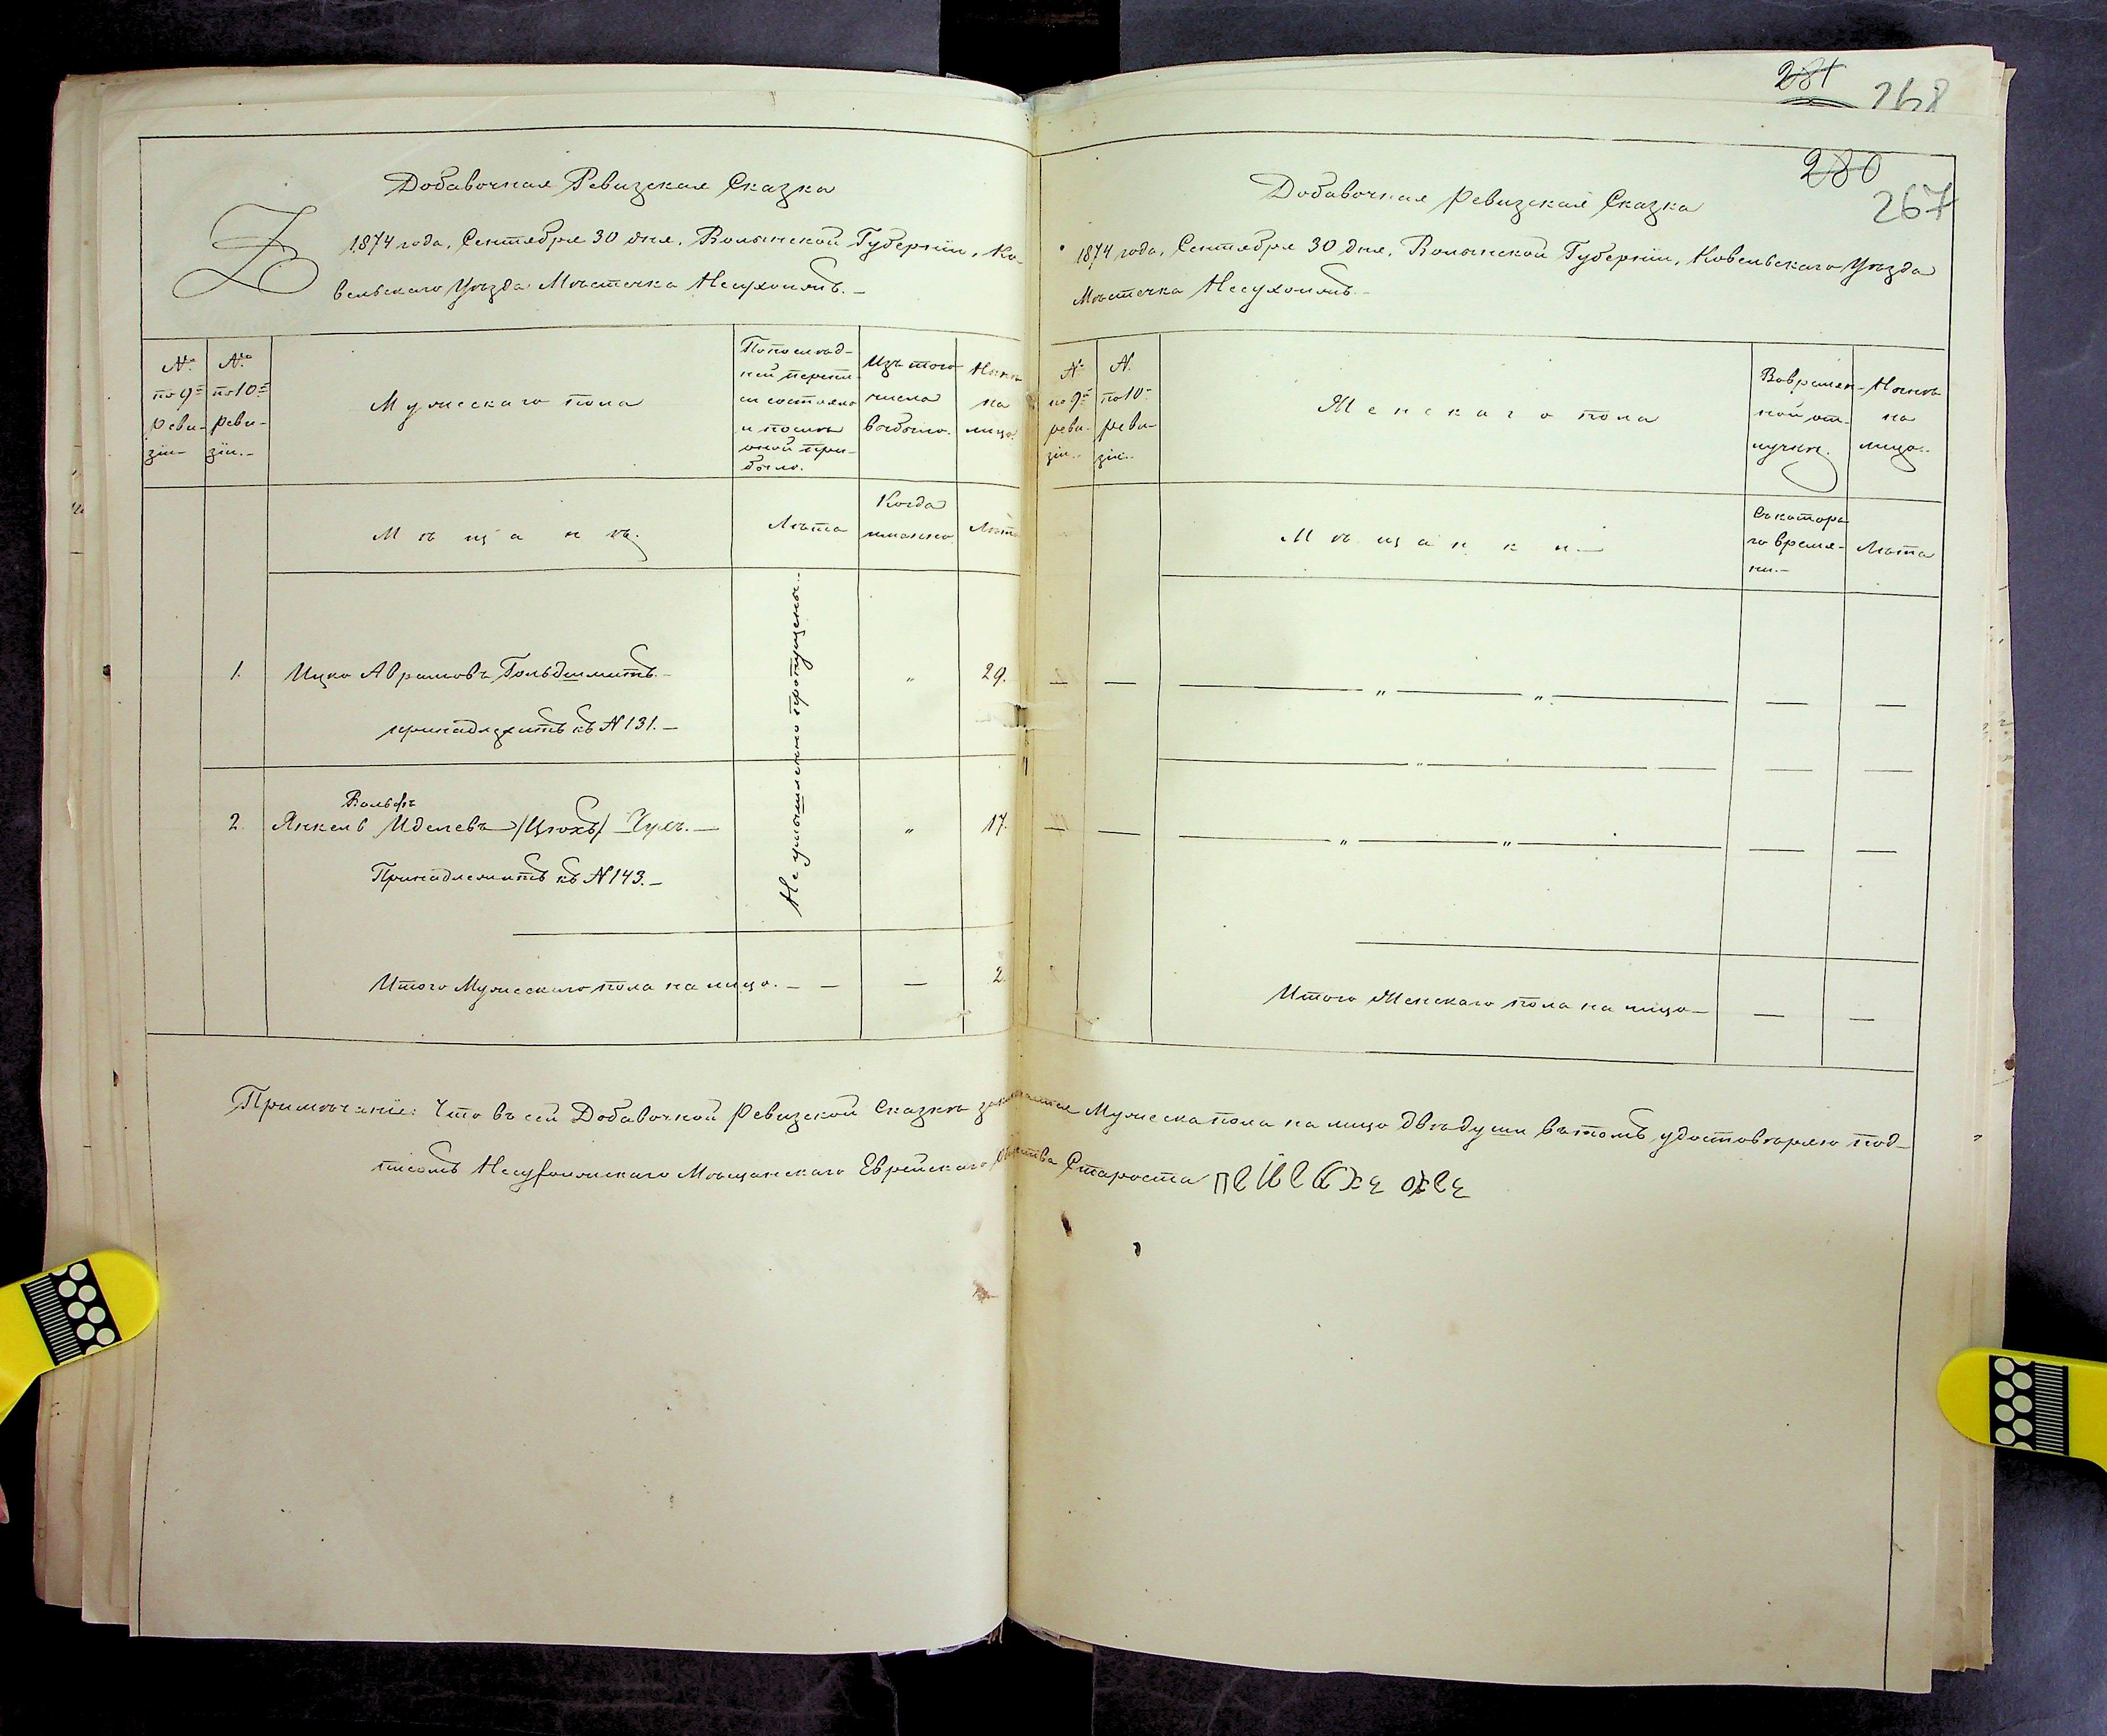 281
268
280
267
Добавочная Ревизская Сказка
1874 года, Сентября 30 дня, Волынской Губерніи, Ко-
вельскаго Уѣзда Мѣстечка Несухоижъ.-
№
по 9й
реви-
зіи-
№
по 10й
реви-
зіи.-
Мужескаго пола
По послѣд-
ней перепи-
си состояло
и послѣ
оной при-
было.
Изъ того
числа
выбыло.
Нынѣ
на
лицо.
Мѣщанѣ.
Лѣта
Когда
именно
Лѣта
Неумышленно пропущены.
1.
Ицко Абрамовъ Гольдшмитъ.-
"
29.
принадлежитъ къ № 131.-
Вольфъ
2.
Янкель Иделевъ /Цюхъ/
"
17.
Принадлежитъ къ № 143.-
Итого Мужескаго пола на лицо. - - — 2.
Добавочная Ревизская Сказка
1874 года, Сентября 30 дня, Волынской Губерніи, Ковельскаго Уѣзда
Мѣстечка Несухоижъ-
№
по 9й
реви-
зіи..
№
по 10й
реви-
зіи..
Женскаго пола
Во времен-
ной от-
лучкѣ.
Нынѣ
на
лицо.
Мѣщанки-
Съ котора-
го време-
ни.-
Лѣта
Итого Женскаго пола на лицо-
Примѣчаніе: Что въ сей Добавочной Ревизской Сказкѣ Мужеска пола на лицо двѣ души въ томъ удостовѣряю под-
писомъ Несухоижскаго Мѣщанскаго Еврейскаго Общества Староста